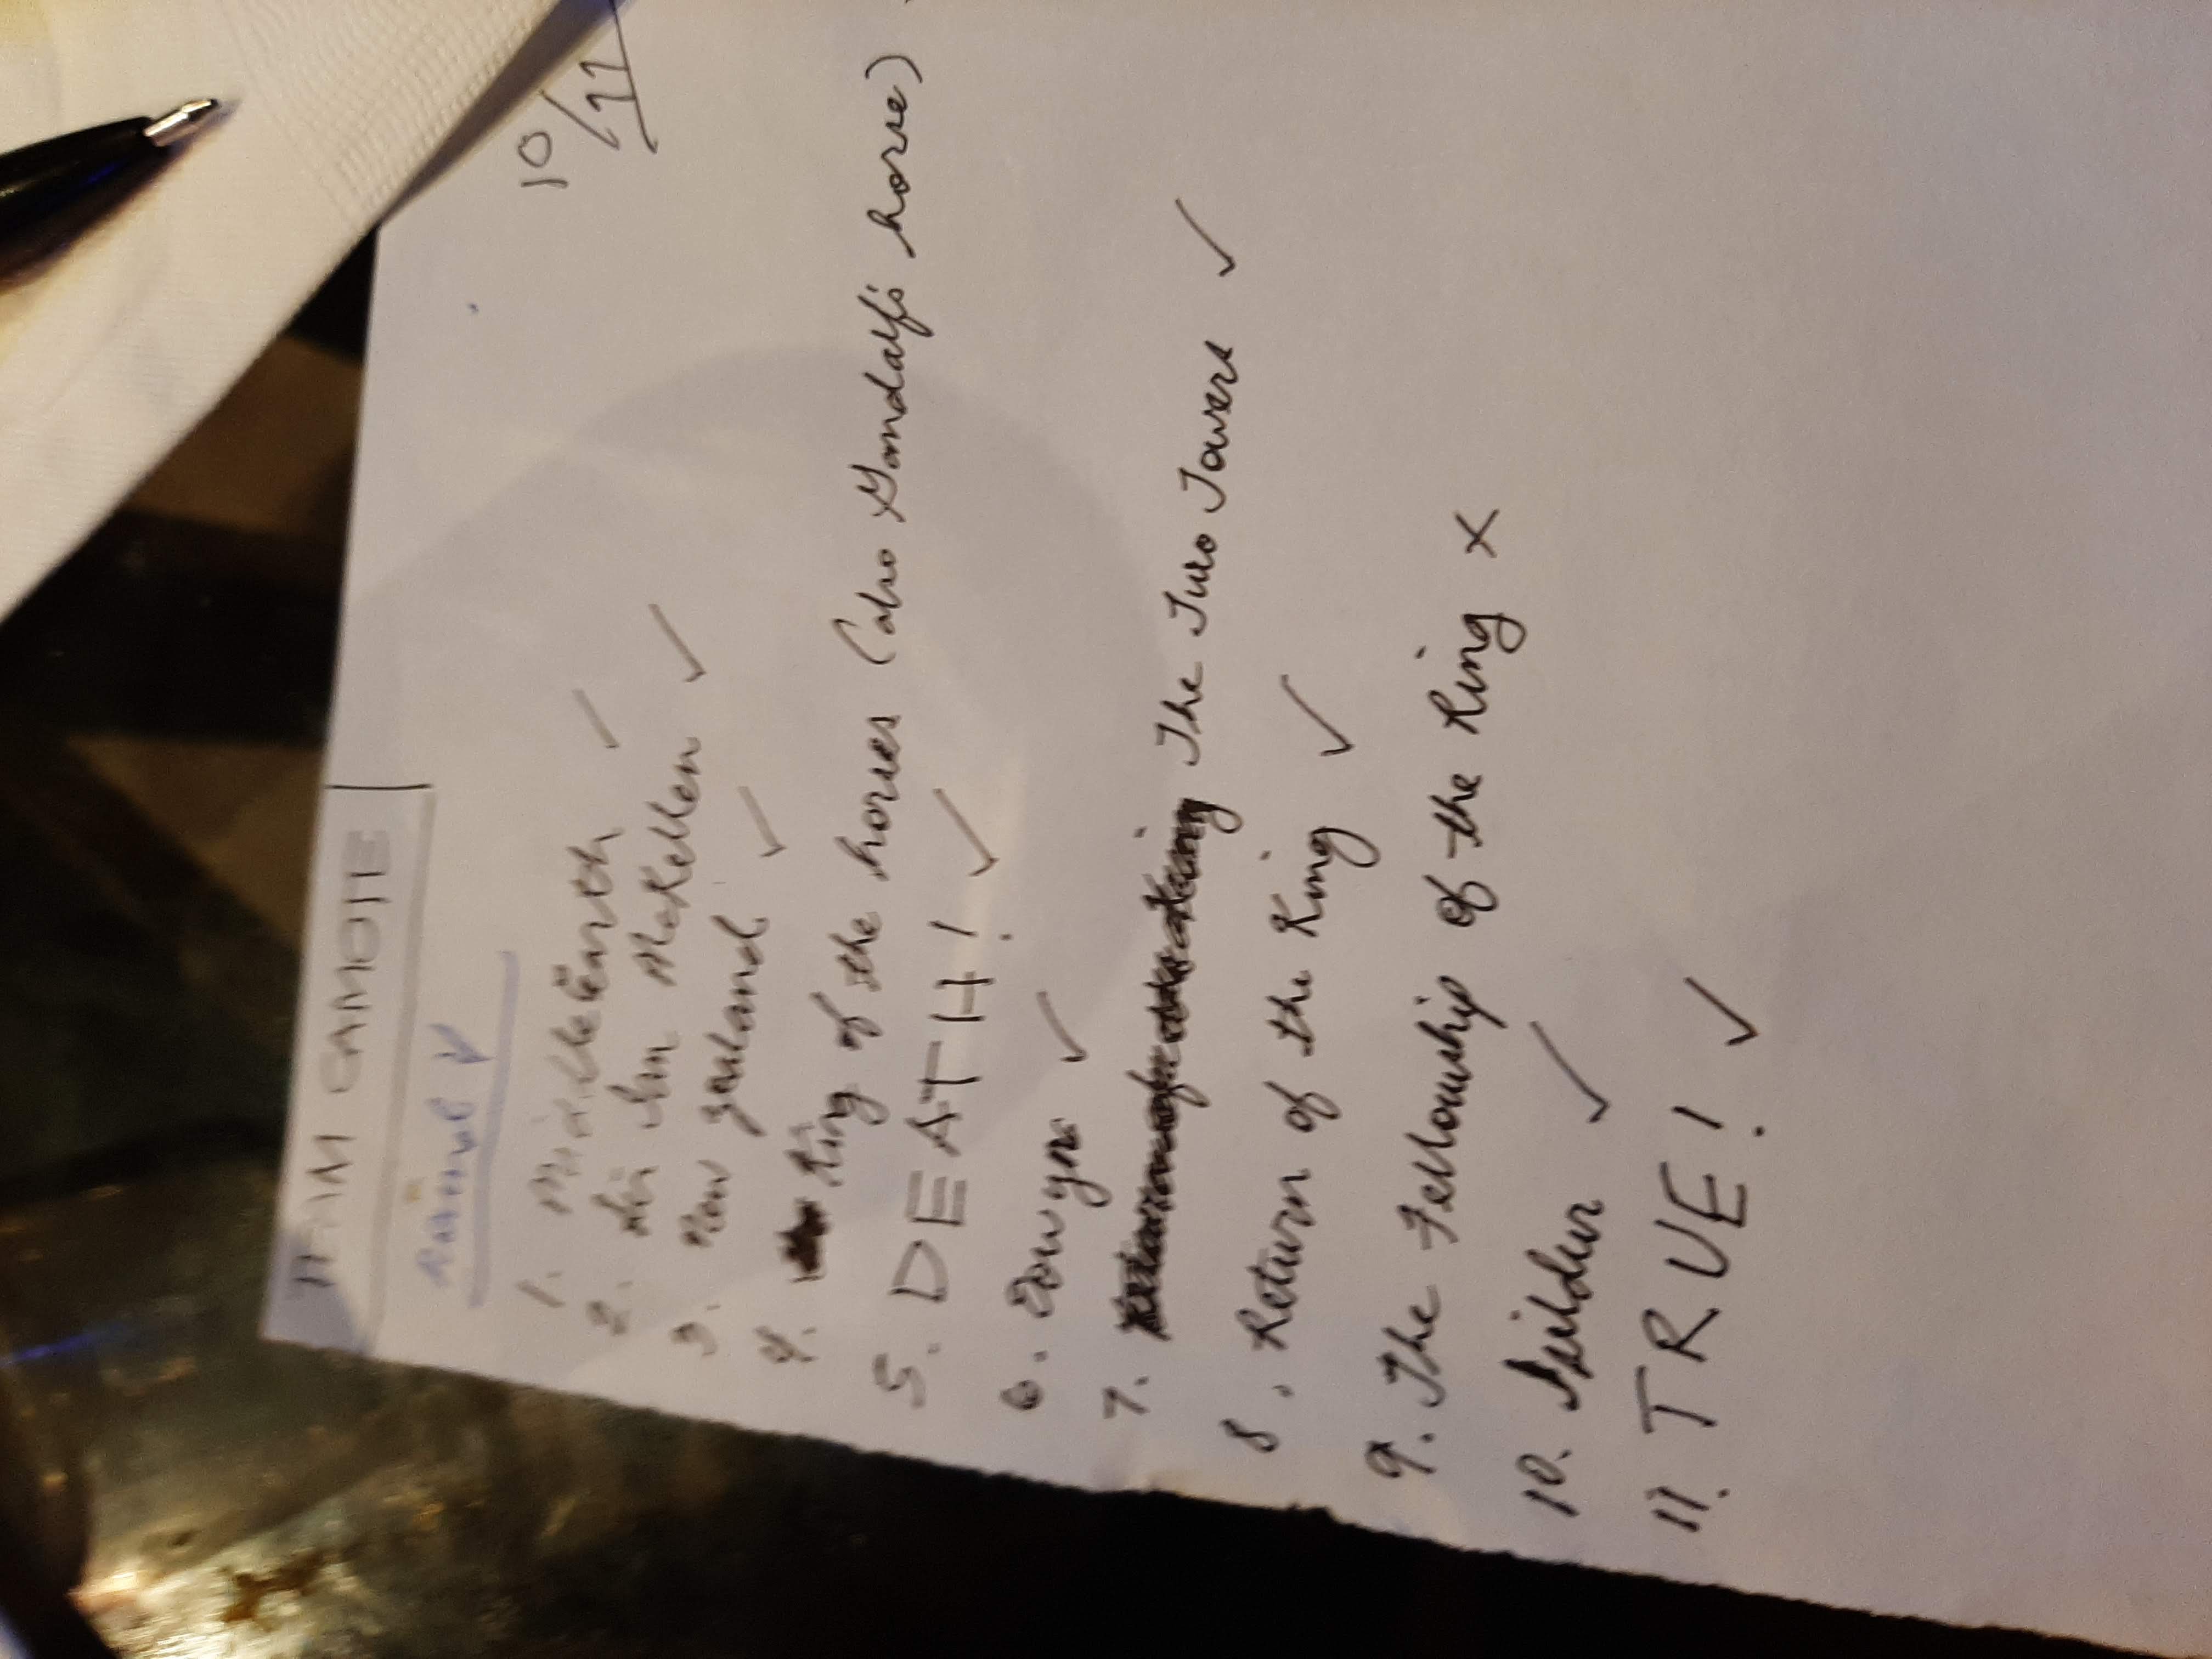 TEAM CAMOTE
10/11
1. Middle Earth ✓
2. Sir Ian McKellen ✓
3. New Zealand ✓
4. King of the horses (also Gandalf's horse)
5. DEATH! ✓
6. Eowyn ✓
7. The Two Towers ✓
8. Return of the King ✓
9. The Fellowship of the Ring ✗
10. Isildur ✓
11. TRUE! ✓